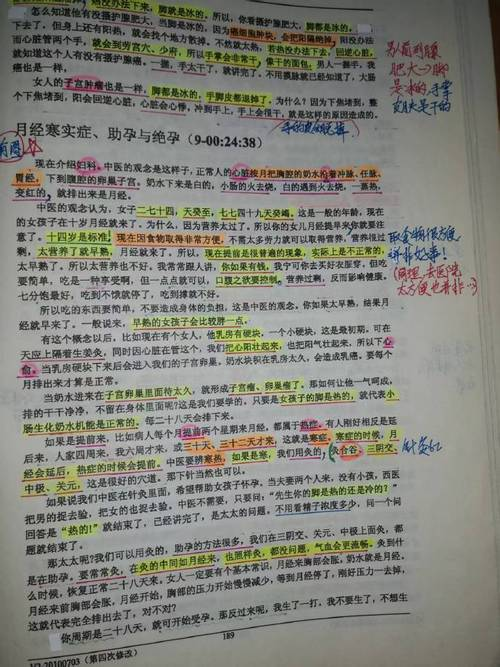 怎么知道他有没有摄护腺肥大，当脚是冰的。因为癌细胞肿块，会把阳隔绝掉，阳没办法
下去了，但身上还有阳热，就会找个地方散掉，不然就太热，若热没办法下去，回逆心脏，
而心脏管两个手，就会到劳宫穴、少府，所以手掌会非常干，像干的面包。男人一握手，我
就知道这个人有没有摄护腺癌。一握，手太干了，就讲完了，不用摸脉就已经知道了，大肠
癌也是一样。
女人的子宫肿瘤也是一样。脚都是冰的，手脚皮都退掉了，为什么？因为下焦堵到，整
个下焦堵到，阳会回逆心脏，心脏会心悸，冲到手上，手上会很干，就是这样的原因造成的。
月经寒实症、助孕与绝孕（9-00:24:38）
现在介绍妇科，中医的观念是这样子，正常人的心脏按月把胸腔的奶水沿着冲脉、任脉、
胃经，下到腹腔的卵巢子宫。奶水下来是白的，小肠的火去烧，白的遇到火去烧，一蒸热，
变红的，就排出来是月经。
中医的观念认为，女子二七十四，天癸至，七七四十九天癸竭。这是一般的年龄，现在
的女孩子在十岁月经就来了。为什么，因为营养太过了。所以你的女儿月经提早来你就要注
意了。十四岁是标准，现在因食物取得非常方便，不需太多劳力就可以取得营养，营养很过
剩，太营养了就早熟，月经就来了。所以，现在提前是很普遍的现象，实际上是不正常的，
太早熟了。所以太营养也不好。我常常跟人讲，你如果有钱，我宁可你去买好衣服穿，但吃
要简单，吃是一种享受啊，但一点点就可以，口腹之欲要控制，营养过剩，反而影响健康。
七分饱最好，吃到不饿就停了，吃到撑就不好。
所以吃的东西要简单，不要造成身体的负担，这是中医观念。你如果太早熟，结果月
经就早来了。一般说来，早熟的女孩子会比较胖一点。
有这个概念以后，比如现在有个女人，他乳房有硬块，一个小硬块，这是最初期，可在
天应上隔着生姜灸，同时因心脏在管这个，我们把心阳壮起来，也把阳气壮起来，所以下心
俞。当乳房硬块下来后会进入我们的子宫卵巢。奶水块积在乳房太久，会造成乳癌。要每个
月排出来才算是正常。
当奶水进来在子宫卵巢里面待太久，就形成子宫瘤、卵巢瘤了。那如何让他一气呵成，
排的干干净净，不留在身体里面呢？这是我们要学的。只要是女孩子的脚是热的，就代表小
肠生化奶水机能是正常的。每二十八天会排下来。
如果是提前来，比如病人每个月提前两个星期来月经，都属于热症。有人刚好相反是延
后来，人家四周来，我六周才来，或三十天、三十二天才来，这就是寒症。寒症的时候，月
经会延后，热症的时候会提前。中医要辨寒热，如果是寒，我们用灸的，灸合谷、三阴交、
中极、关元，这是很好的穴道。那下针当然也可以。
如果说我们中医在针灸里面，希望帮助女孩子怀孕。当夫妻两个人来，没有小孩，西医
把男的捉去验，把女的也捉去验，中医不需要，只要问："先生你的脚是热的还是冷的？"
回答是"热的！"就结束了，已经讲完了，是太太的问题，不用看精子浓度多少，问一个问
题就结束了。
那太太呢？我们可以用灸的，助孕的方法很多，我们在三阴交、关元、中极上面灸，都
是在助孕。要常常灸，在灸的中间如月经来，也照样灸，都没问题，气血会更流畅。灸到什
么时候，恢复正常二十八天来。女人一定要有个基本常识，月经来胸部会胀，奶水就是月经。
月经来前胸部会胀，月经开始，胸部的压力开始慢慢减少，等到月经停了，刚好压力一去掉，
这就代表完全排出去了，对不对？
你周期是二十八天，就可开始受孕。那反过来呢，我生了一打，我不要生了，不想生
189
20100703（第四次修改）